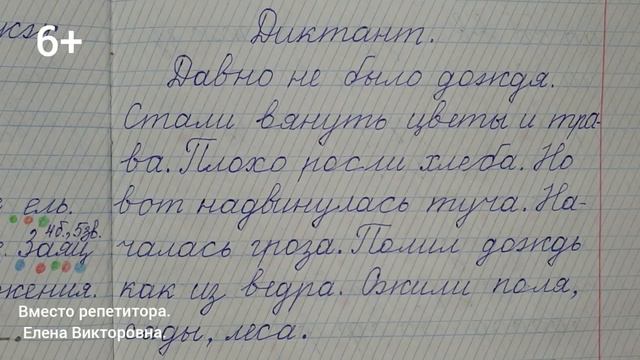 6+
Диктант.
Давно не было дождя.
Стали вянуть цветы и тра-
ва. Плохо росли хлеба. Но
ель.
вот надвинулась туча. На-
4б., 5зв.
Заяц
чалась гроза. Полил дождь
как из ведра. Ожили поля,
сады, леса.
Вместо репетитора.
Елена Викторовна.